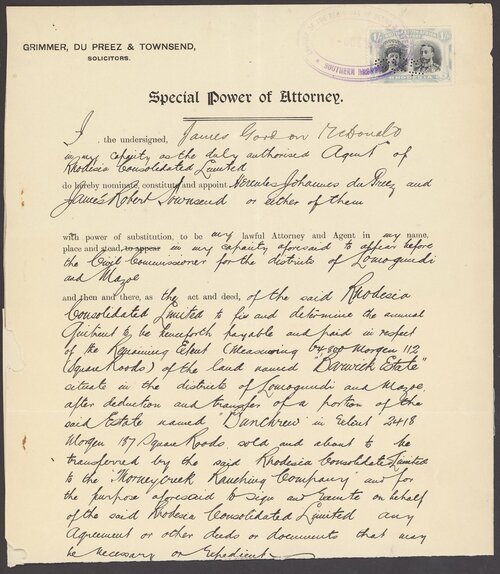 GRIMMER, DU PREEZ & TOWNSEND,
SOLICITORS.
SOUTHERN
RHODESIA
Special Power of Attorney.
I, the undersigned, James Gordon McDonald
in my capacity as the duly authorised Agent of
Rhodesia Consolidated Limited
do hereby nominate, constitute and appoint Hercules Johannes du Preez and
James Robert Townsend or either of them
with power of substitution, to be my lawful Attorney and Agent in my name,
place and stead, to appear in my capacity aforesaid to appear before
the Civil Commissioner for the districts of Lomogundi
and Mazoe
and then and there, as the act and deed, of the said Rhodesia
Consolidated Limited to fix and determine the annual
Quitrent to be henceforth payable and paid in respect
of the Remaining Extent (Measuring Morgen 112
Square Roods) of the land named "Barwick Estate"
situate in the districts of Lomogundi and Mazoe,
after deduction and transfer of a portion of the
said Estate named "Dunchrew" in Extent 2418
Morgen 187 Square Roods, sold and about to be
transferred by the said Rhodesia Consolidated Limited
to the Ranching Company and for
the purpose aforesaid to sign and Execute on behalf
of the said Rhodesia Consolidated Limited any
Agreement or other deeds or documents that may
be necessary or Expedient